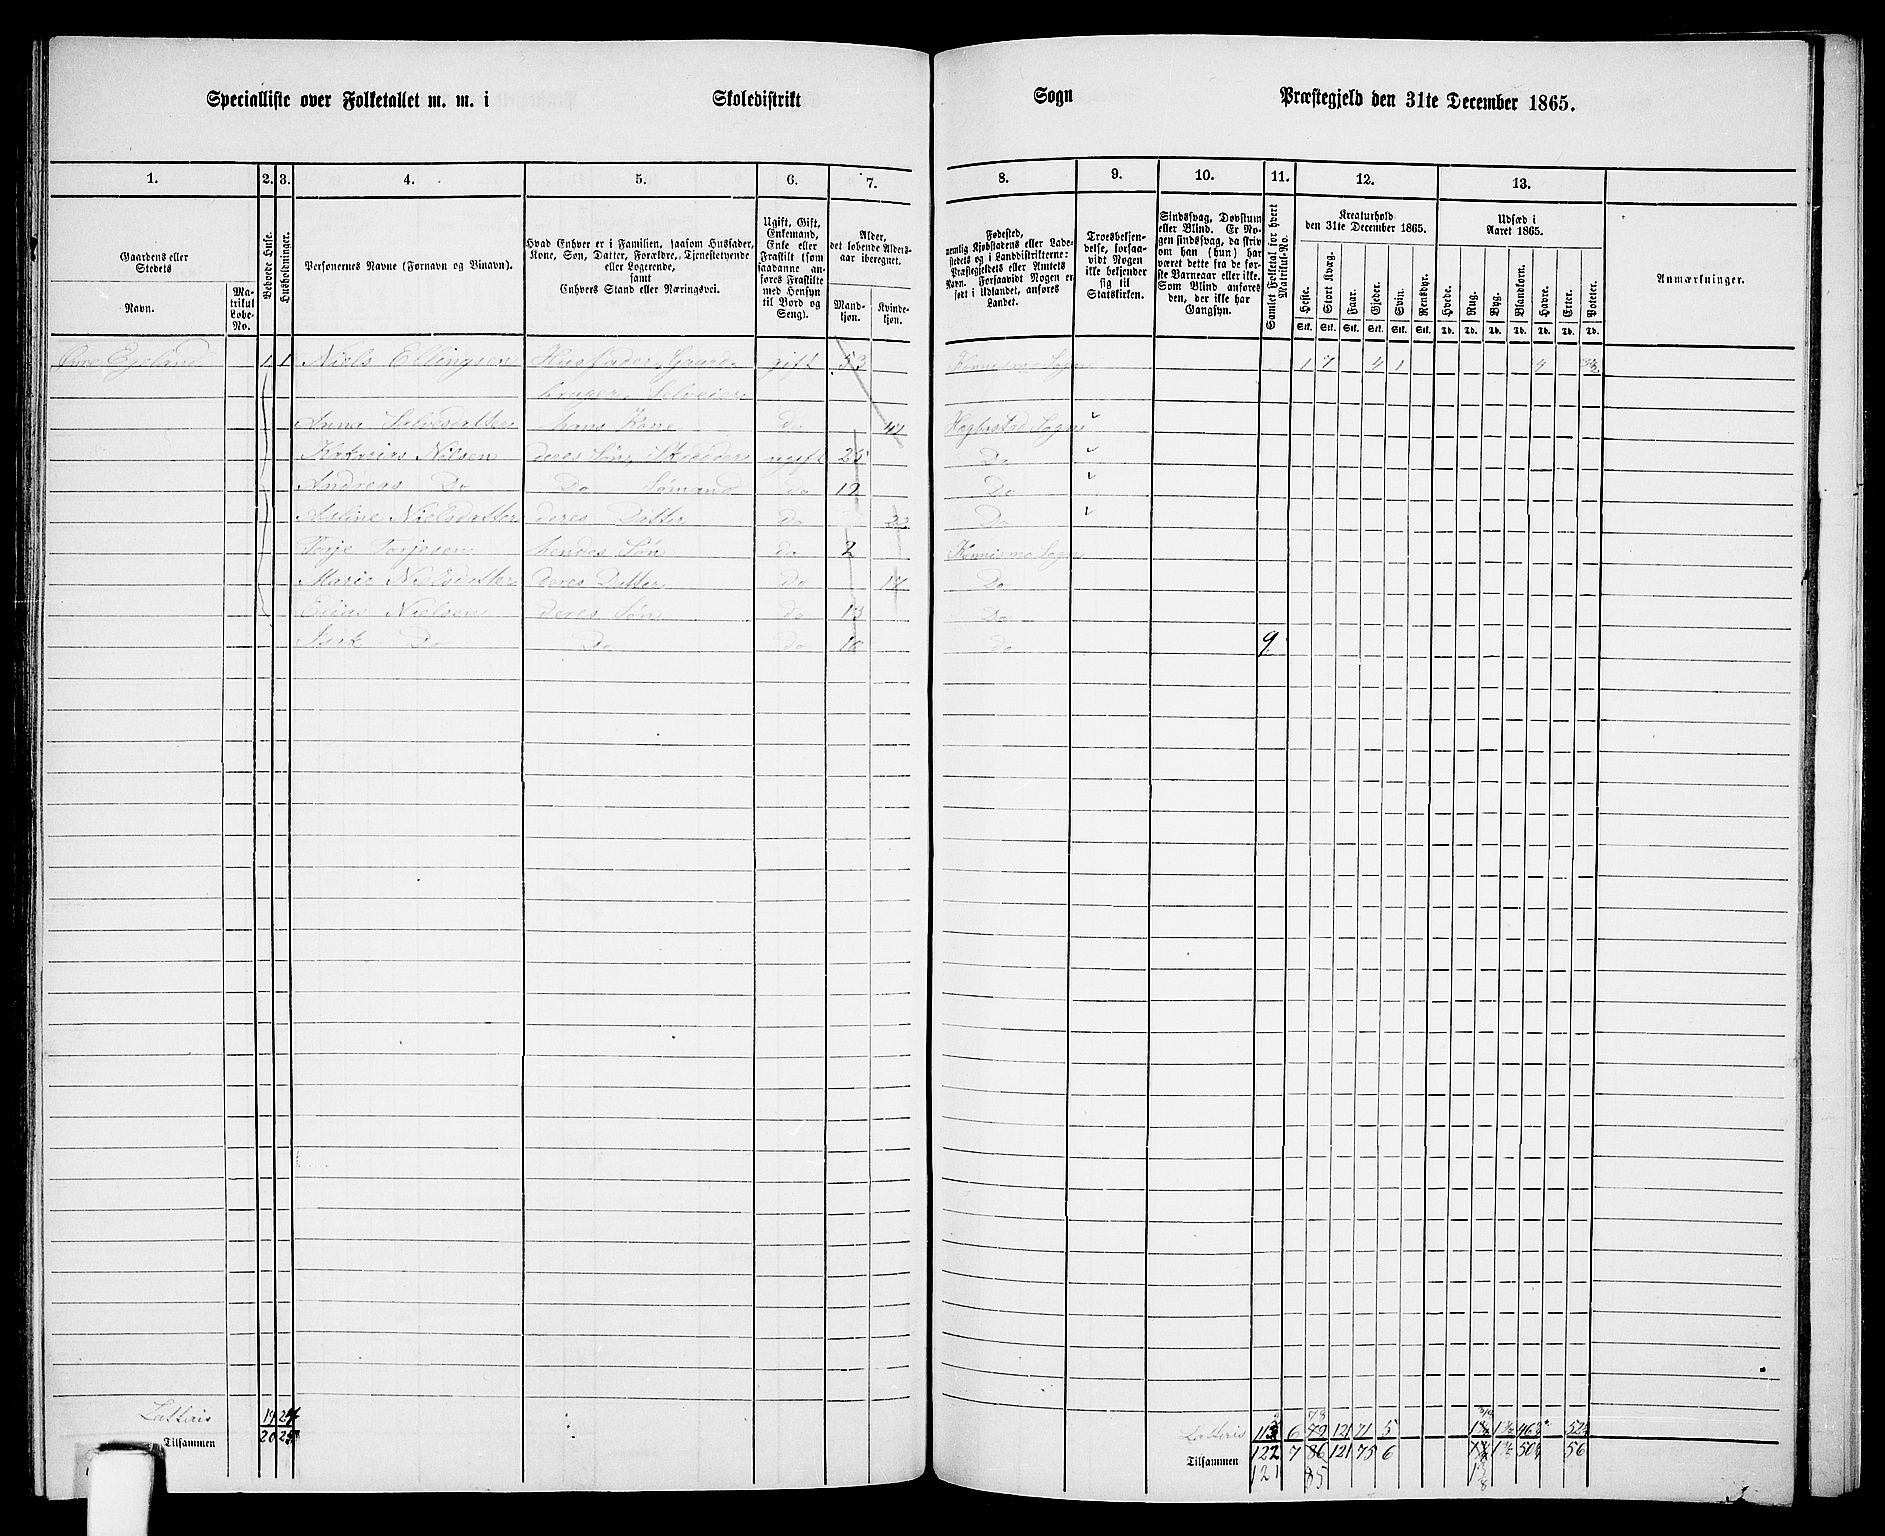 Specialliste over Folketallet m. m. i Skoledistrikt Sogn Præstegjeld den 31te December 1865.
1. 2. 3. 4. 5. 6. 7. 8. 9. 10. 11. 12. 13.
Gaardens eller Stedets
Navn.
Matrikul Løbe-No.
Beboede Huse.
Husholdninger.
Personernes Navne (Fornavn og Vinavn).
Hvad Enhver er i Familien, saasom Husfader,
Kone, Søn, Datter, Forældre, Tjenestetyende
eller Logerende,
samt
Enhvers Stand eller Næringsvei.
Ugift, Gift,
Enkemand,
Enke eller
Fraskilt (som
saadanne an-
føres Fraskilte
med Hensyn
til Bord og
Seng).
Alder,
det løbende Alders-
aar iberegnet.
Mand-
kjøn.
Kvinde-
kjøn.
Fødested,
nemlig Kjøbstadens eller Lade-
stedets og i Landdistrikterne:
Præstegjeldets eller Amtets
Navn. Forsaavidt Nogen er
født i Udlandet, anføres
Landet.
Troesbekjen-
delse, forsaa-
vidt Nogen
ikke bekjender
sig til
Statskirken.
Sindssvag, Døvstum
eller Blind. Er No-
gen sindssvag, da skriv
om han (hun) har
været dette fra de før-
ste Barneaar eller ikke.
Som Blind anføres
den, der ikke har
Gangsyn.
Samlet Folketal for hvert Matrikul-No.
Kreaturhold
den 31te December 1865.
Heste. Stort Kvæg. Faar. Gjeder. Svin. Rensdyr.
Stk. Stk. Stk. Stk. Stk. Stk.
Udsæd i
Aaret 1865.
Hvede. Rug. Byg. Blandkorn. Havre. Erter. Poteter.
Td. Td. Td. Td. Td. Td. Td.
Anmærkninger.
Egeland 1 1 Niels Ellingsen Husfader, Gaard- gift 53 Sogn 1 7 4 1 4
bruger Selveier
Anna hans Kone do Sogn
Nilsen deres Søn, ugift 25 Do
Andreas Do Do Sømand do Do
Nielsdatter deres Datter do Do
Torje Torjesen hendes Søn do 2 Sogn
Marie Nielsdatter deres Datter do Do
Elias Nielsen deres Søn do 13 Do
Do Do do do 9
Latteris 19 24 Latteris 113 6 121 71 5
Tilsammen 20 25 Tilsammen 122 7 86 121 75 6 56
121 85